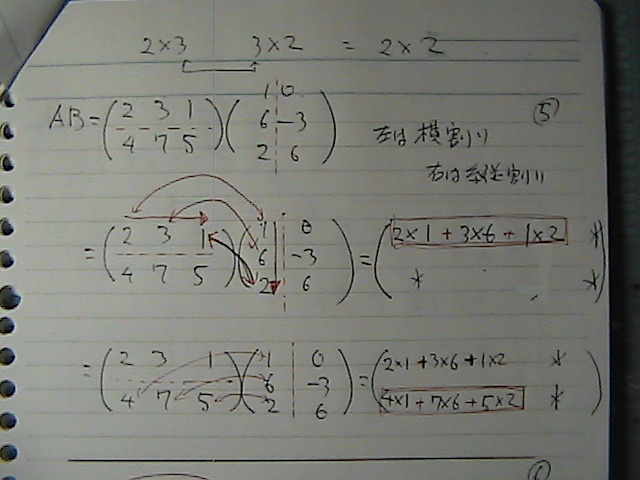 2×3 3×2 = 2×2
⑤
AB = (2 3 1 / 4 7 5)(1 0 / 6 -3 / 2 6)
左は横割り
右は縦割り
= (2 3 1 / 4 7 5)(1 0 / 6 -3 / 2 6) = (2×1+3×6+1×2 * / * *)
= (2 3 1 / 4 7 5)(1 0 / 6 -3 / 2 6) = (2×1+3×6+1×2 * / 4×1+7×6+5×2 *)